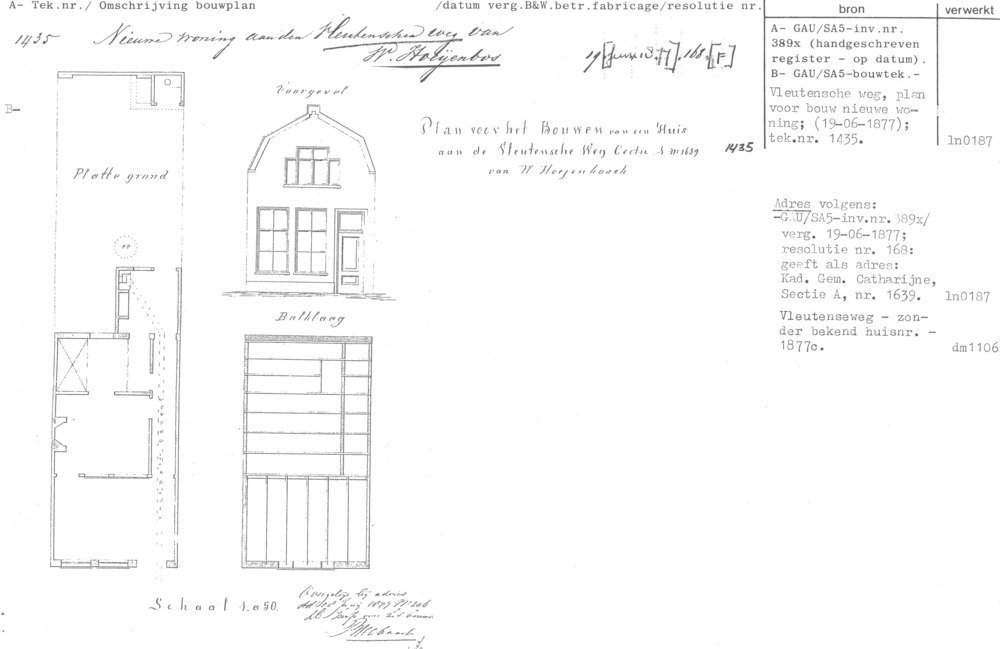 A- Tek.nr./ Omschrijving bouwplan /datum verg.B&W.betr.fabricage/resolutie nr.
bron
verwerkt
1435 Nieuwe woning aan den Vleutenschen weg van
W. Hoeijenbos
19 [Juni 1877]. 168. [F]
A- GAU/SA5-inv.nr.
389x (handgeschreven
register - op datum).
B- GAU/SA5-bouwtek.-
Vleutensche weg, plan
voor bouw nieuwe wo-
ning; (19-06-1877);
tek.nr. 1435. ln0187
B-
Voorgevel
Plan voor het Bouwen van een Huis
aan de Vleutensche Weg Sectie A No 1639
van W Hoejenbosch
1435
Platte grond
PP
Adres volgens:
-GAU/SA5-inv.nr. 389x/
verg. 19-06-1877;
resolutie nr. 168:
geeft als adres:
Kad. Gem. Catharijne,
Sectie A, nr. 1639. ln0187
Vleutenseweg - zon-
der bekend huisnr. -
1877c. dm1106
Balklaag
Schaal 1 a 50.
bij adres
1877